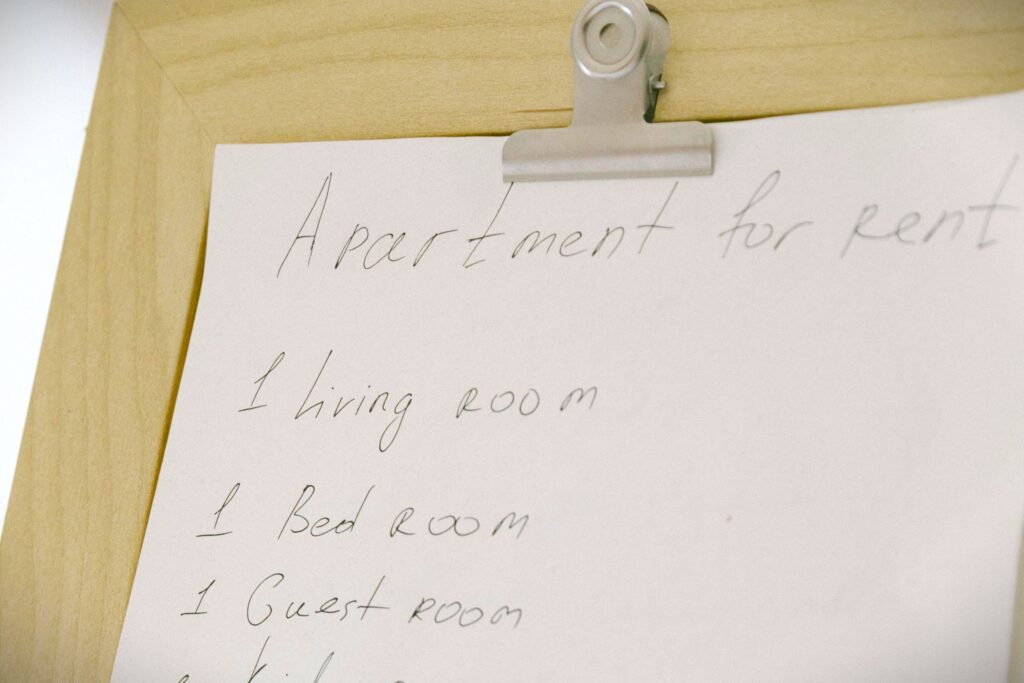 Apartment for Rent
1 Living ROOM
1 Bed ROOM
1 Guest ROOM